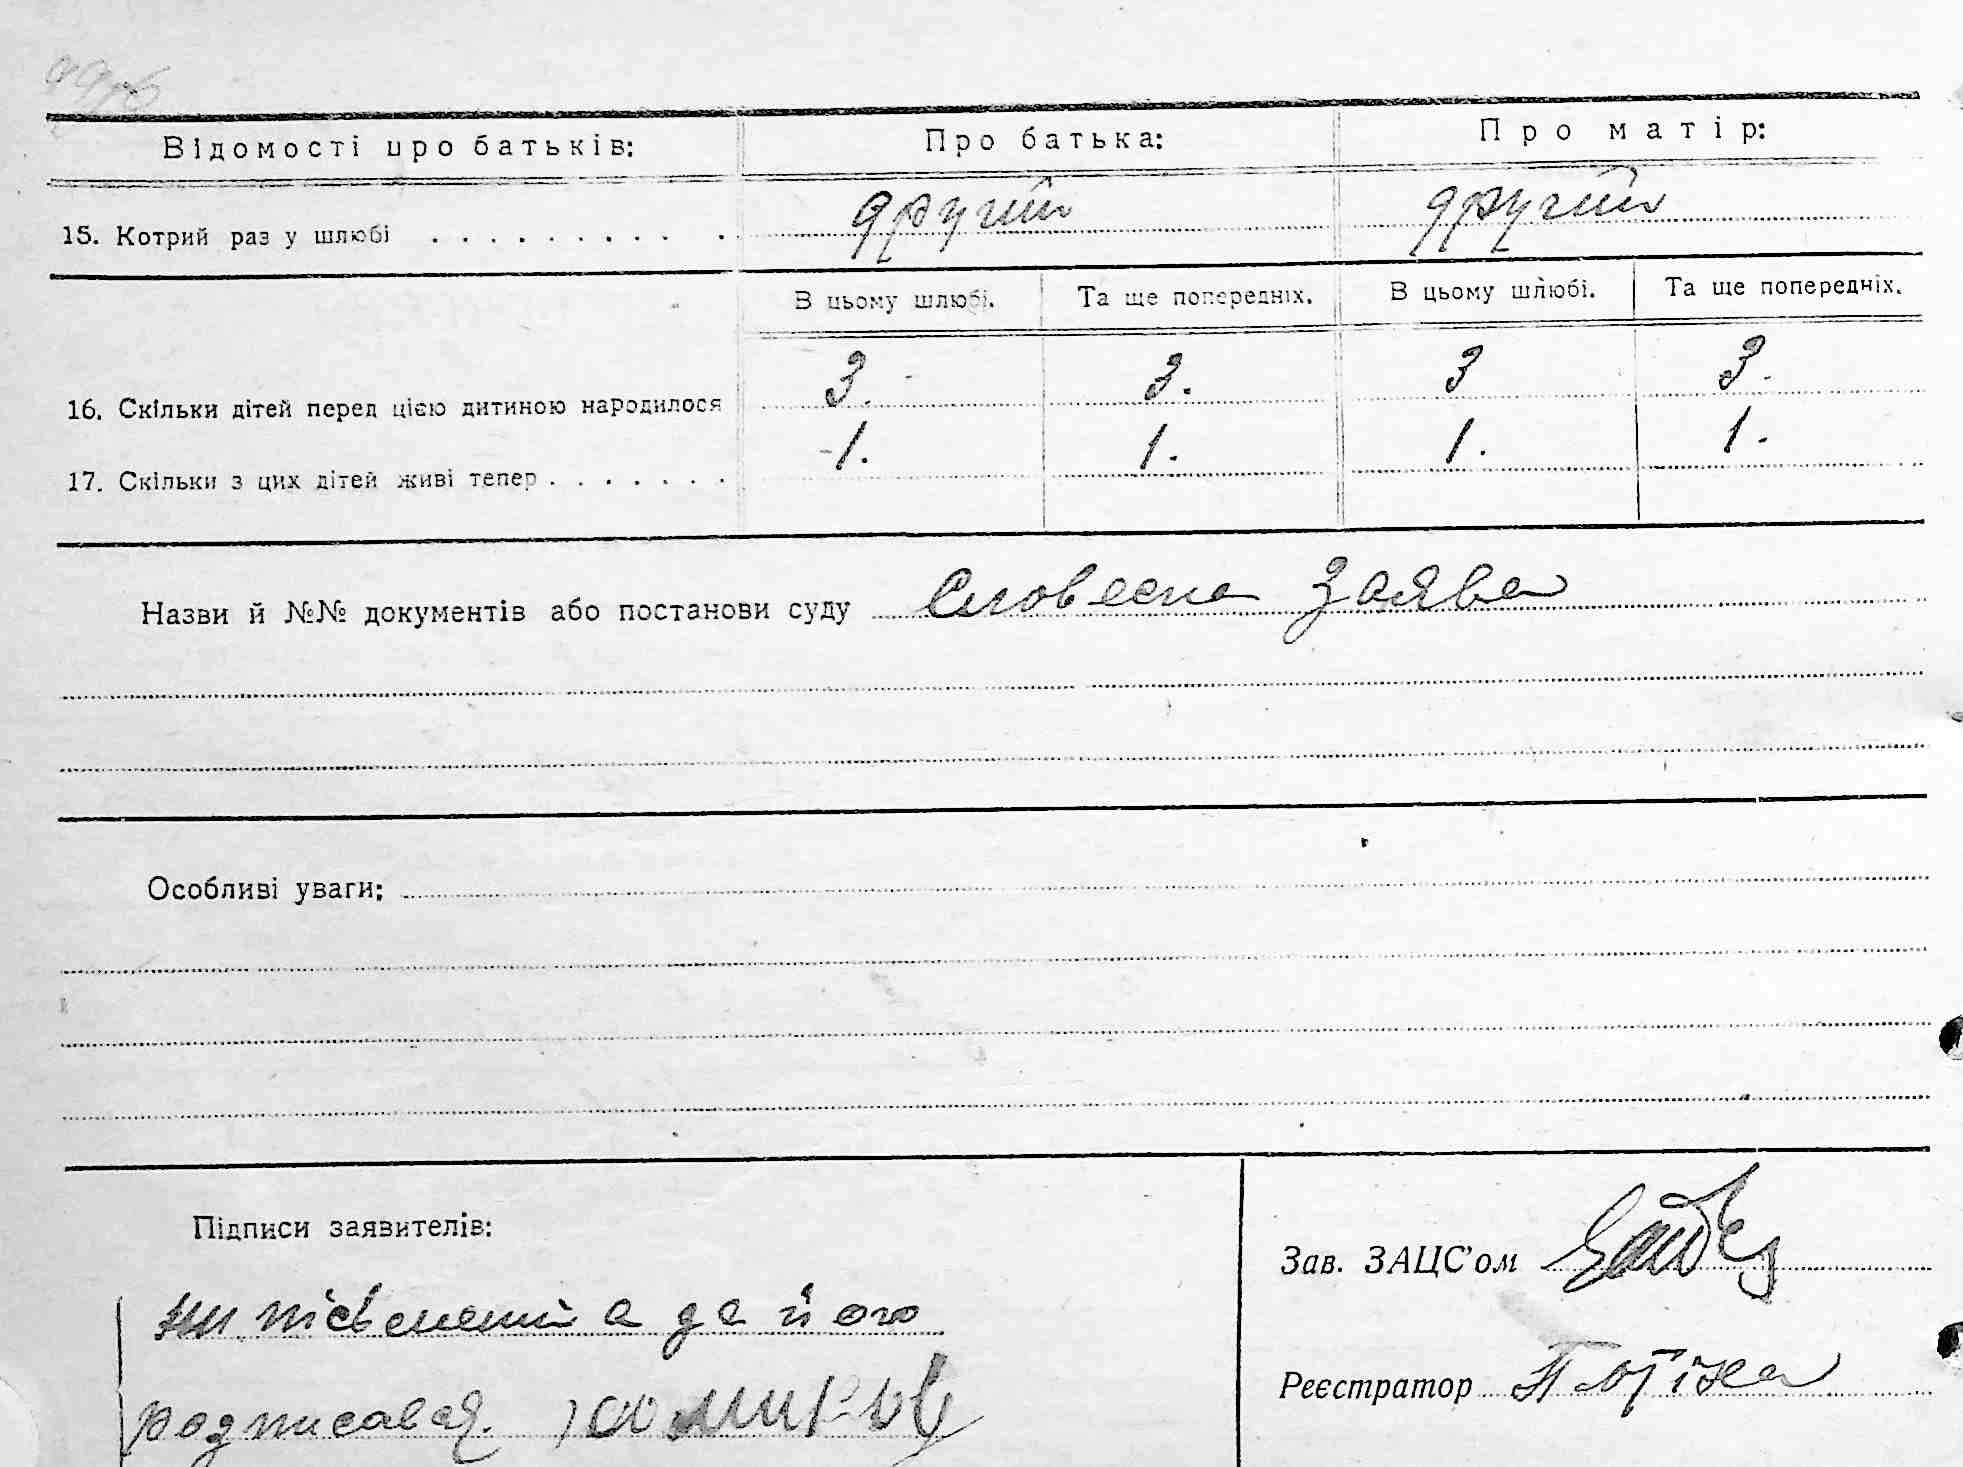 Відомості про батьків: Про батька: Про матір:
15. Котрий раз у шлюбі . . . . . . . . . . другий другий
В цьому шлюбі. Та ще попередніх. В цьому шлюбі. Та ще попередніх.
16. Скільки дітей перед цією дитиною народилося 3. 3. 3 3.
17. Скільки з цих дітей живі тепер . . . . . . . 1. 1. 1. 1.
Назви й №№ документів або постанови суду Словесна заява
Особливі уваги:
Підписи заявителів:
Зав. ЗАЦС'ом
а за його
Реєстратор
росписався.